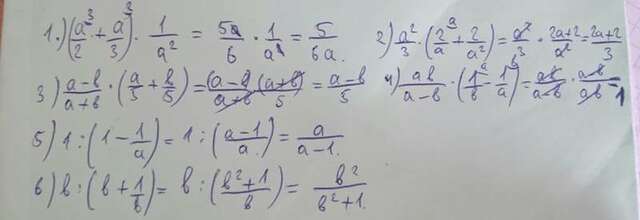 1.) (a³/2 + a³/3) · 1/a² = 5a/6 · 1/a² = 5/6a. 2) a²/3 · (2^a/a + 2/a²) = a²/3 · 2a+2/a² = 2a+2/3
3) a-b/a+b · (a/5 + b/5) = (a-b)(a+b)/a+b 5 = a-b/5 4) ab/a-b · (1^a/b - 1^b/a) = ab/a-b · a-b/ab = 1
5) 1 : (1 - 1/a) = 1 : (a-1/a) = a/a-1.
6) b : (b + 1/b) = b : (b²+1/b) = b²/b²+1.